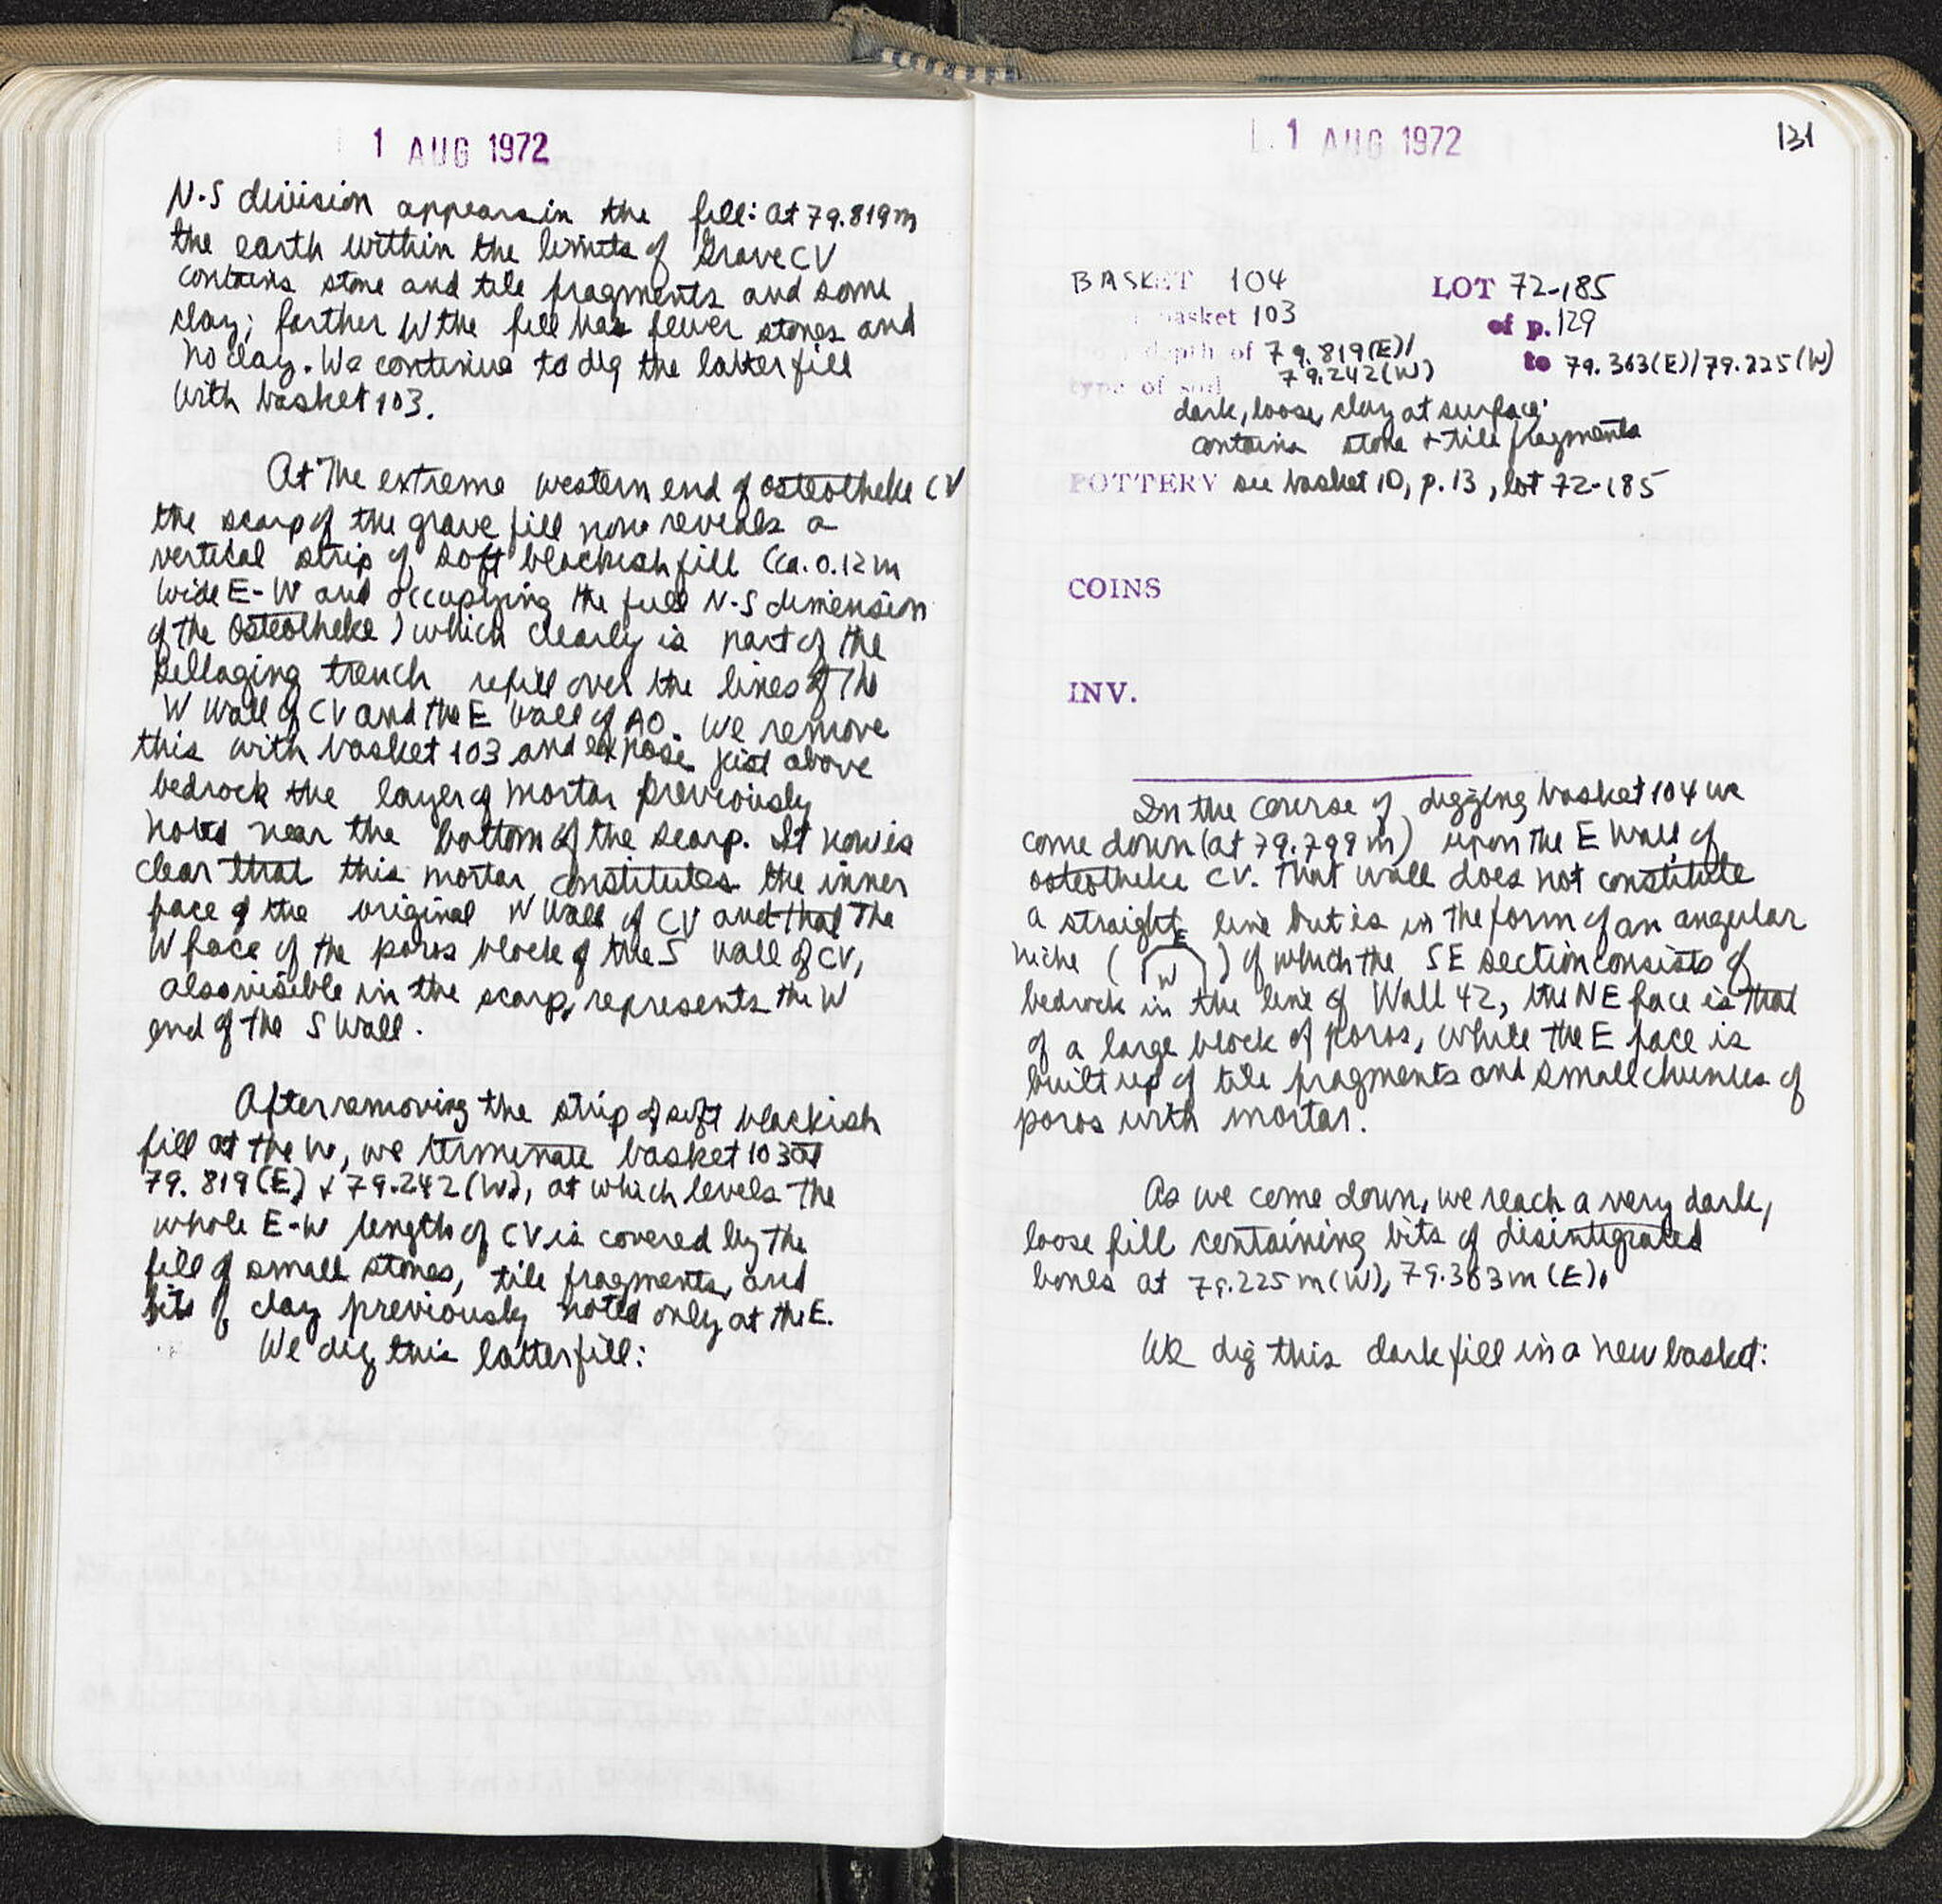 1 AUG 1972
N-S division appears in the fill: at 79.819m
the earth within the limits of Grave CV
contains stone and tile fragments and some
clay; farther W the fill has fewer stones and
no clay. We continue to dig the latter fill
with basket 103.
At the extreme western end of osteotheke CV
the scarp of the grave fill now reveals a
vertical strip of soft blackish fill (ca. 0.12m
wide E-W and occupying the full N-S dimension
of the Osteotheke) which clearly is part of the
pillaging trench refill over the lines of the
W Wall of CV and the E wall of AO. We remove
this with basket 103 and expose just above
bedrock the layer of mortar previously
noted near the bottom of the scarp. It now is
clear that this mortar constitutes the inner
face of the original W Wall of CV and that the
W face of the poros block of the S wall of CV,
also visible in the scarp, represents the W
end of the S Wall.
After removing the strip of soft blackish
fill at the W, we terminate basket 103 at
79.819(E) & 79.242(W), at which levels the
whole E-W length of CV is covered by the
fill of small stones, tile fragments, and
bits of clay previously noted only at the E.
We dig this latter fill:
1 AUG 1972
131
BASKET 104 LOT 72-185
basket 103 of p. 129
depth of 79.819(E)/ to 79.363(E)/79.225(W)
79.242(W)
type of soil
dark, loose, clay at surface;
contains stone & tile fragments
POTTERY see basket 10, p. 13, lot 72-185
COINS
INV.
In the course of digging basket 104 we
come down (at 79.799m) upon the E Wall of
osteotheke CV. That wall does not constitute
a straight line but is in the form of an angular
E
niche ( W ) of which the SE section consists of
bedrock in the line of Wall 42, the NE face is that
of a large block of poros, while the E face is
built up of tile fragments and small chunks of
poros with mortar.
As we come down, we reach a very dark,
loose fill containing bits of disintegrated
bones at 79.225m(W), 79.363m(E).
We dig this dark fill in a new basket: